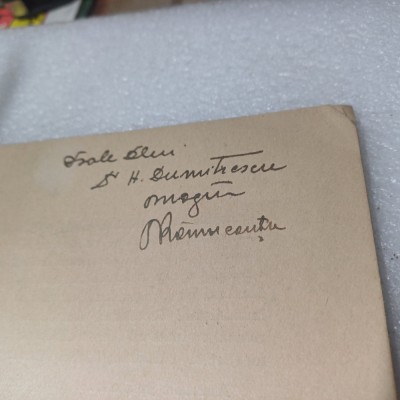 D-sale Dlui
Dr H. Dumitrescu
omagiu
Râmniceanu